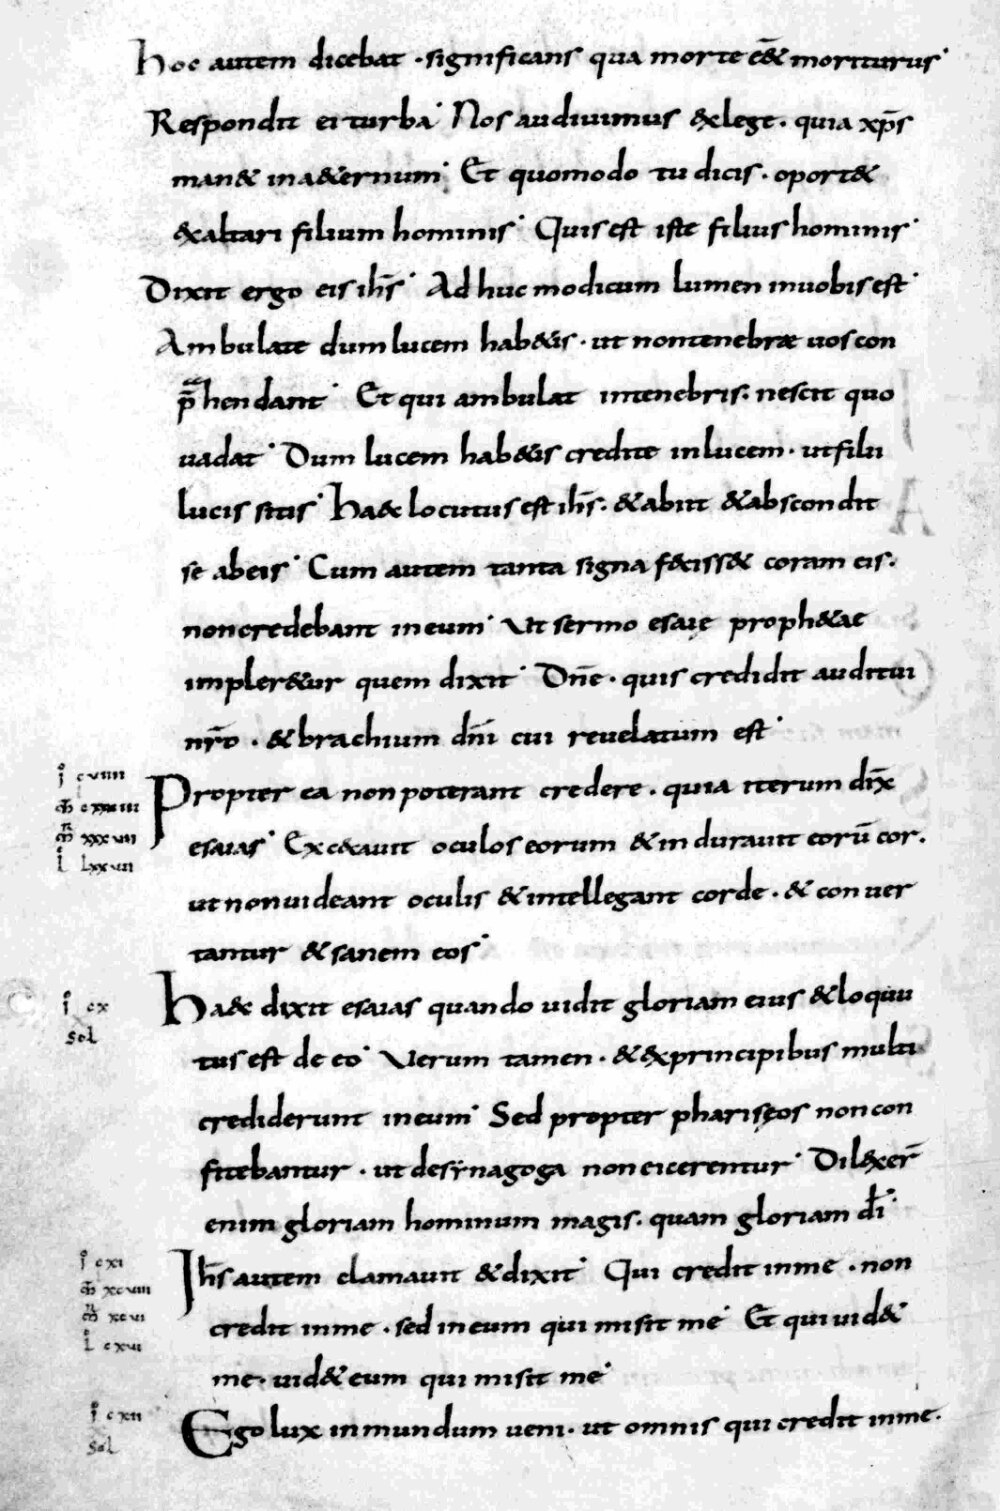 hoc autem dicebat · significans qua morte eē& moriturus
Respondit ei turba Nos audiuimus &xlege · quia xp̄s
man& ina&ernum Et quomodo tu dicis · oport&
&xaltari filium hominis Quis est iste filius hominis
Dixit ergo eis ih̄s Adhuc modicum lumen inuobis est
Ambulate dum lucem hab&is · ut nontenebrae uos con
p̄hendant Et qui ambulat intenebris · nescit quo
uadat Dum lucem hab&is credite inlucem · ut filii
lucis sitis Haec locutus est ih̄s · &abiit &abscondit
se abeis Cum autem tanta signa feciss& coram eis ·
noncredebant ineum Ut sermo esaię proph&ae
impler&ur quem dixit Dn̄e · quis credidit auditui
nr̄o · &brachium dn̄i cui reuelatum est
i cviiii
m̄ cxxxiii
m̄ xxxvii
l lxxvii
Propter ea non poterant credere · quia iterum dix̄
esaias Excecauit oculos eorum &indurauit eorū cor ·
ut nonuideant oculis &intellegant corde · &conuer
tantur &sanem eos
i cx
sol
Haec dixit esaias quando uidit gloriam eius &loquu
tus est de eo Uerum tamen · &&xprincipibus multi
crediderunt ineum Sed propter pharisęos non con
fitebantur · ut desynagoga non eicerentur Dil&xer̄
enim gloriam hominum magis · quam gloriam d̄i
i cxi
m̄ xcviii
m̄ xcvi
l cxvi
Ih̄s autem clamauit &dixit Qui credit inme · non
credit inme · sed ineum qui misit me Et qui uid&
me · uid& eum qui misit me
i cxii
sol
Ego lux inmundum ueni · ut omnis qui credit inme ·